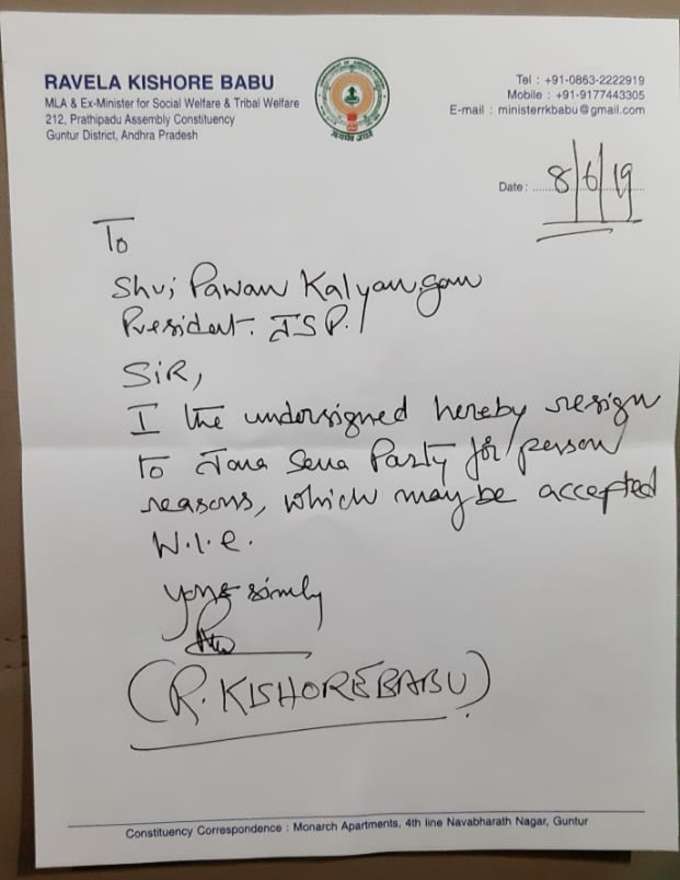 RAVELA KISHORE BABU
MLA & Ex-Minister for Social Welfare & Tribal Welfare
212, Prathipadu Assembly Constituency
Guntur District, Andhra Pradesh
Tel : +91-0863-2222919
Mobile : +91-9177443305
E-mail : ministerrkbabu@gmail.com
Date : 8/6/19
To
Shri Pawan Kalyan garu
President. JSP.
SiR,
I the undersigned hereby resign
to Jana Sena Party for person
reasons, which may be accepted
W.I.E.
(R. KISHORE BABU)
Constituency Correspondence : Monarch Apartments, 4th line Navabharath Nagar, Guntur